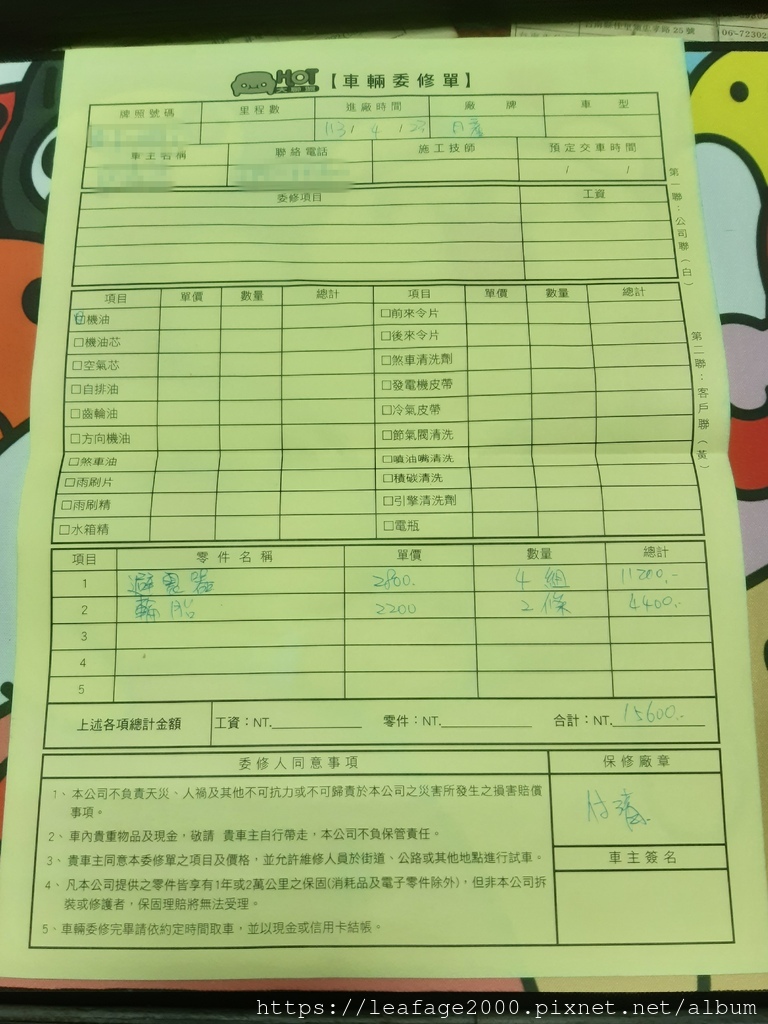 06-7230
HOT
大聯盟
【車輛委修單】
牌照號碼 里程數 進廠時間 廠牌 車型
113/ 4 / 23
車主名稱 聯絡電話 施工技師 預定交車時間
/ /
委修項目 工資
項目 單價 數量 總計 項目 單價 數量 總計
□機油 □前來令片
□機油芯 □後來令片
□空氣芯 □煞車清洗劑
□自排油 □發電機皮帶
□齒輪油 □冷氣皮帶
□方向機油 □節氣閥清洗
□煞車油 □噴油嘴清洗
□雨刷片 □積碳清洗
□雨刷精 □引擎清洗劑
□水箱精 □電瓶
項目 零件名稱 單價 數量 總計
1 避震器 2800. 4組 11200.-
2 輪胎 2200 2條 4400.-
3
4
5
上述各項總計金額 工資：NT. 零件：NT. 合計：NT. 15600.-
委修人同意事項 保修廠章
1、本公司不負責天災、人禍及其他不可抗力或不可歸責於本公司之災害所發生之損害賠償
事項。
2、車內貴重物品及現金，敬請 貴車主自行帶走，本公司不負保管責任。
3、貴車主同意本委修單之項目及價格，並允許維修人員於街道、公路或其他地點進行試車。
4、凡本公司提供之零件皆享有1年或2萬公里之保固(消耗品及電子零件除外)，但非本公司拆
裝或修護者，保固理賠將無法受理。
5、車輛委修完畢請依約定時間取車，並以現金或信用卡結帳。
車主簽名
第一聯：公司聯（白）
第二聯：客戶聯（黃）
https://leafage2000.pixnet.net/album